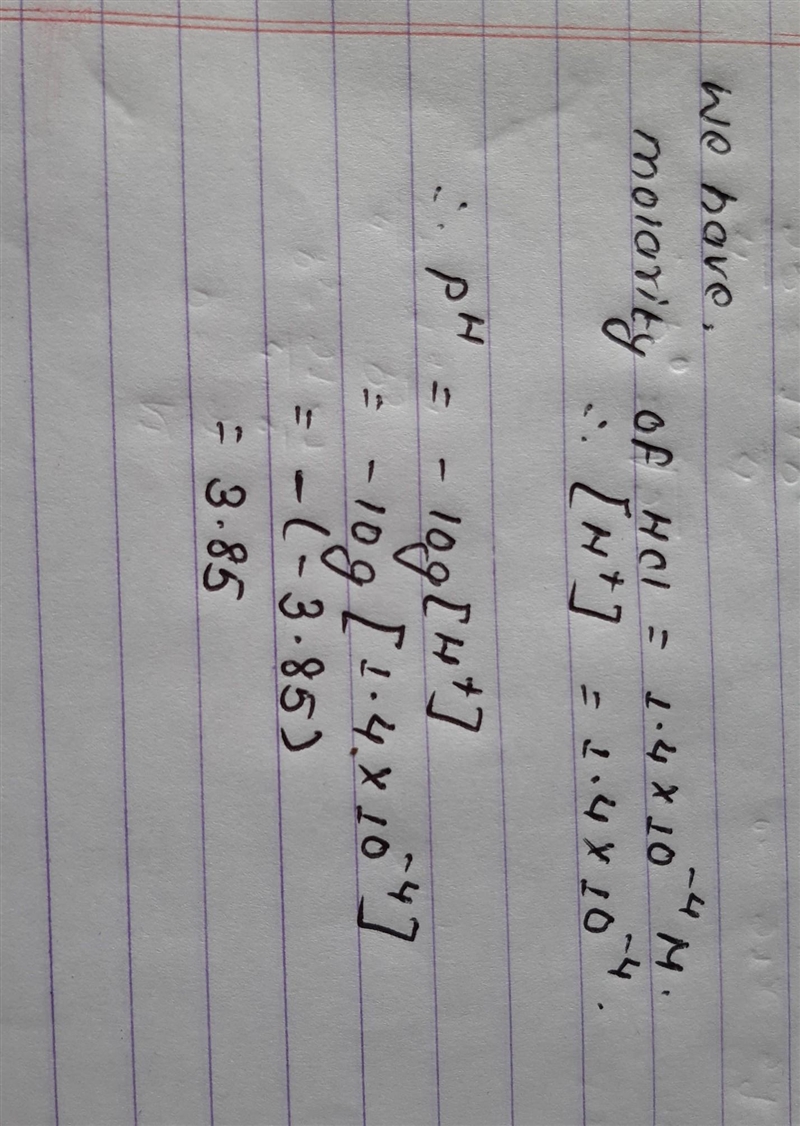 We have,
molarity of HCl = 1.4 × 10⁻⁴ M.
∴ [H⁺] = 1.4 × 10⁻⁴.
∴ pH = - log [H⁺]
= - log [1.4 × 10⁻⁴]
= - (- 3.85)
= 3.85